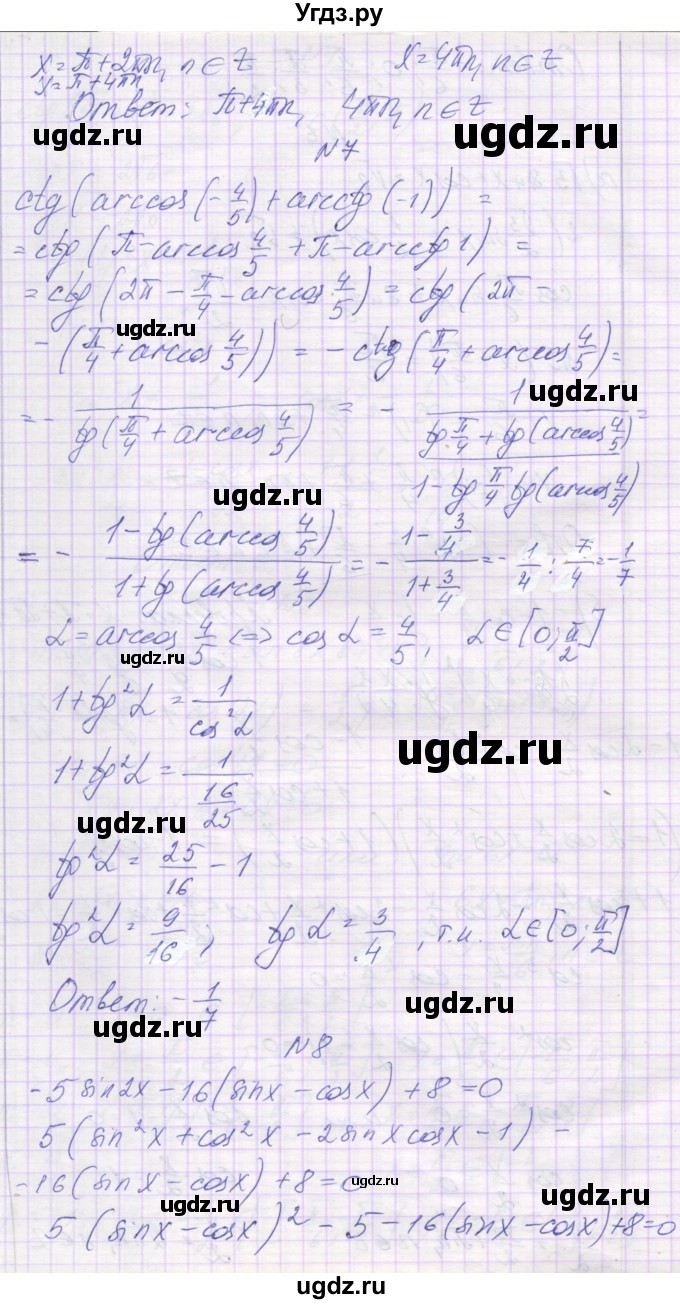 Угдз.ру
x = π + 2πn, n ∈ Z    x = 4πn, n ∈ Z
y = π + 4πn
Ответ: π + 4πn, 4πn, n ∈ Z
ugdz.ru ugdz.ru
N7
ctg(arccos(-4/5) + arcctg(-1)) =
= ctg(π - arccos 4/5 + π - arcctg 1) =
= ctg(2π - π/4 - arccos 4/5) = ctg(2π -
ugdz.ru
- (π/4 + arccos 4/5)) = - ctg(π/4 + arccos 4/5) =
ugdz.ru
= - 1/(tg(π/4 + arccos 4/5)) = - 1/((tg π/4 + tg(arccos 4/5))/(1 - tg π/4 tg(arccos 4/5))) =
ugdz.ru
= - (1 - tg(arccos 4/5))/(1 + tg(arccos 4/5)) = - (1 - 3/4)/(1 + 3/4) = - 1/4 : 7/4 = - 1/7
α = arccos 4/5 <=> cos α = 4/5, α ∈ [0; π/2]
ugdz.ru
1 + tg²α = 1/cos²α
ugdz.ru
1 + tg²α = 1/(16/25)
ugdz.ru
tg²α = 25/16 - 1
tg²α = 9/16, tg α = 3/4, т.к. α ∈ [0; π/2]
ugdz.ru
Ответ: - 1/7
ugdz.ru
N8
-5 sin2x - 16(sinx - cosx) + 8 = 0
ugdz.ru
5(sin²x + cos²x - 2sinxcosx - 1) -
-16(sinx - cosx) + 8 = 0
ugdz.ru ugdz.ru ugdz.ru
5(sinx - cosx)² - 5 - 16(sinx - cosx) + 8 = 0
ugdz.ru ugdz.ru
ugdz.ru